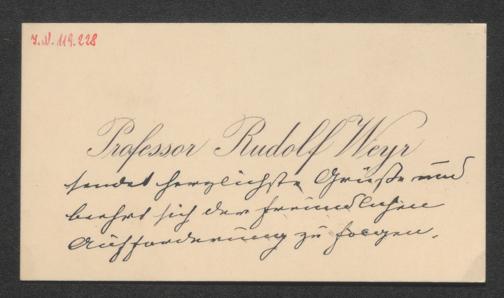 J.N. 119.228
Professor Rudolf Weyr
sendet herzlichste Grüße und
beehrt sich der freundlichen
Aufforderung zu folgen.